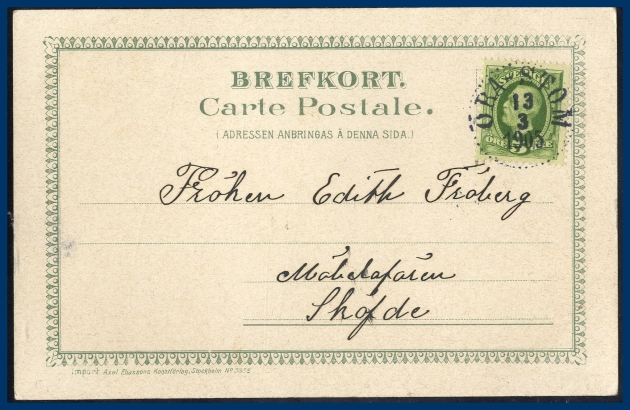 BREFKORT.
Carte Postale.
(ADRESSEN ANBRINGAS Å DENNA SIDA.)
SVERIGE
ÖRASTOM
13
3
1905
ÖRE
Fröken Edith Fröberg
Möbelafären
Sköfde
Import Axel Eliassons Konstförlag, Stockholm No 3935